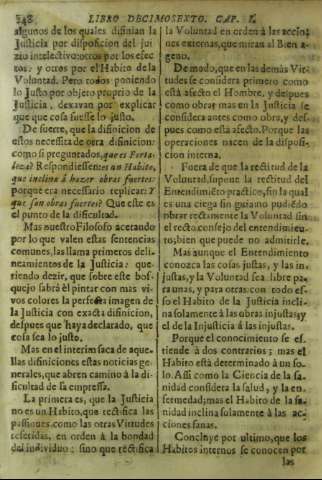 348 LIBRO DECIMOSEXTO. CAP. I.
algunos de los quales difinian la
Justicia por disposicion del jui
zio intelectivo: otros por los efec
tos, y otros por el Habito de la
Voluntad. Pero todos poniendo
lo Justo por objeto proprio de la
Justicia, dexavan por explicar
que que cosa fuesse lo justo.
De suerte, que la difinicion de
estos necesita de otra difinicion:
como si preguntados, que es Forta-
leza? Respondiessen: es un Habito,
que inclina à hazer obras fuertes:
porque era necessario replicar: Y
que son obras fuertes? Que este es
el punto de la dificultad.
Mas nuestro Filosofo acetando
por lo que valen estas sentencias
comunes, las llama primeros deli-
neamientos de la Justicia: que-
riendo dezir, que sobre este bos-
quejo sabrà èl pintar con mas vi-
vos colores la perfecta imagen de
la Justicia con exacta difinicion,
despues que haya declarado, que
cosa sea lo justo.
Mas en el interim saca de aque-
llas difiniciones estas noticias ge-
nerales, que abren camino à la di-
ficultad de su empressa.
La primera es, que la Justicia
no es un Habito, que rectifica las
passiones, como las otras Virtudes
referidas, en orden à la bondad
del individuo; sino que rectifica
la Voluntad en orden à las accio-
nes externas, que miran al Bien a-
geno.
De modo, que en las demàs Vir-
tudes se considera primero como
està afecto el Hombre, y despues
como obra; mas en la Justicia se
considera antes como obra, y des-
pues como està afecto. Porque las
operaciones nacen de la disposi-
cion interna.
Fuera de que la rectitud de la
Voluntad, supone la rectitud del
Entendimiẽto practico, sin la qual
es una ciega sin guia: no pudiẽdo
obrar rectamente la Voluntad sin
el recto consejo del entendimien-
to; bien que puede no admitirle.
Mas aunque el Entendimiento
conozca las cosas justas, y las in-
justas, y la Voluntad sea libre pa-
ra unas, y para otras: con todo es-
so el Habito de la Justicia incli-
na solamente à las obras justas; y
el de la Injusticia à las injustas.
Porque el conocimiento se es-
tiende à dos contrarios; mas el
Habito està determinado à un so-
lo. Assi como la Ciencia de la sa-
nidad considera la salud, y la en-
fermedad; mas el Habito de la sa-
nidad inclina solamente à las ac-
ciones sanas.
Concluye por ultimo, que los
Habitos internos se conocen por
las